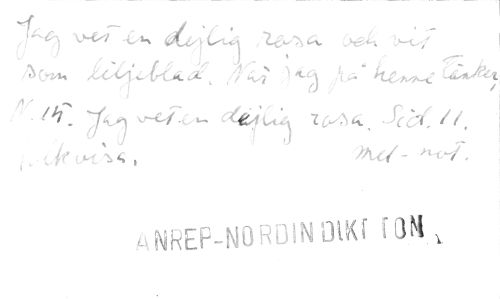 Jag vet en dejlig rosa och vit
som liljeblad. När jag på henne tänker,
N. 15. Jag vet en dejlig rosa. Sid. 11.
Folkvisa. mel-not.
ANREP-NORDIN DIKT TON.